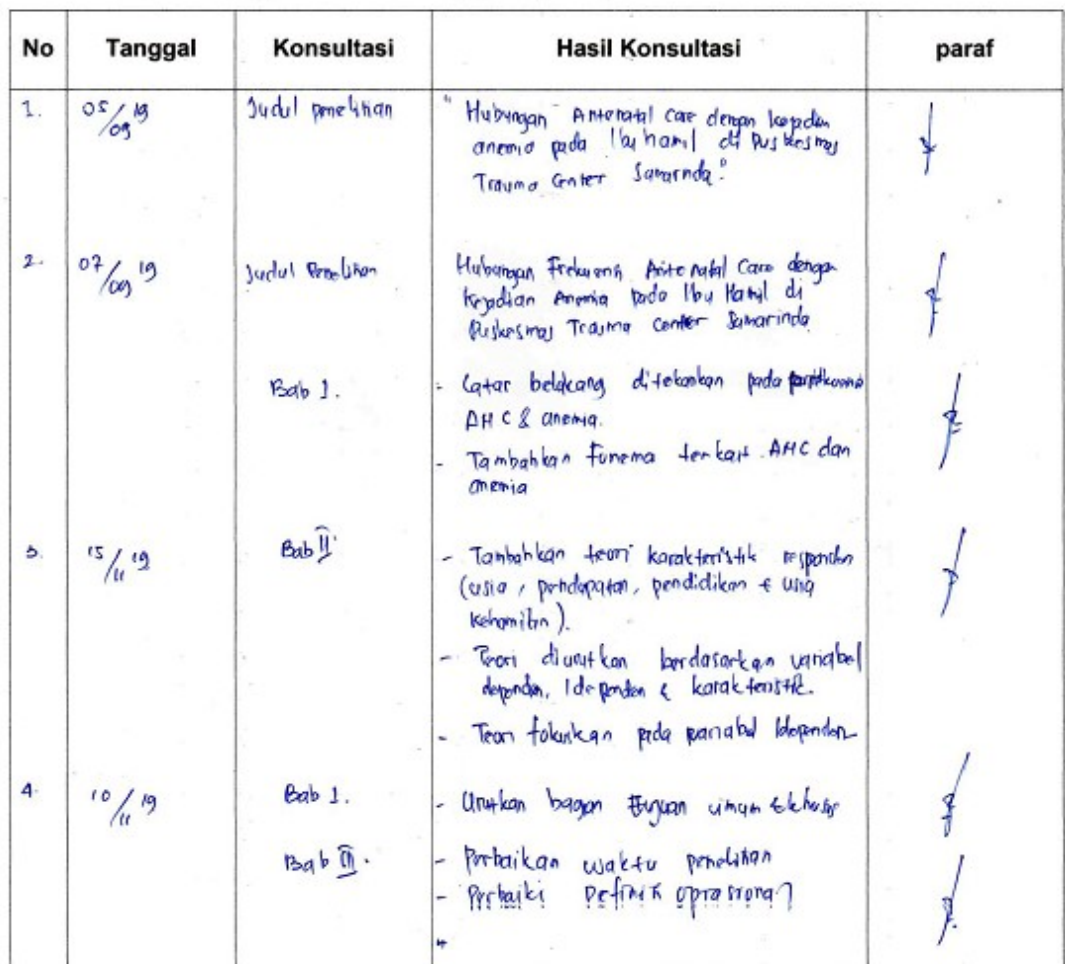 No Tanggal Konsultasi Hasil Konsultasi paraf
1. 05/09 19 Judul penelitian " Hubungan Antenatal Care dengan kejadian
anemia pada Ibu hamil di Puskesmas
Trauma Center Samarinda."
2. 07/09 19 Judul Penelitian Hubungan Frekuensi Antenatal Care dengan
Kejadian Anemia pada Ibu Hamil di
Puskesmas Trauma Center Samarinda
Bab I. - Latar belakang ditekankan pada
ANC & anemia.
- Tambahkan Funema terkait ANC dan
anemia
3. 15/11 19 Bab II - Tambahkan teori karakteristik responden
(usia, pendapatan, pendidikan & usia
Kehamilan).
- Teori diurutkan berdasarkan variabel
dependen, Idependen & karakteristik.
- Teori fokuskan pada variabel Idependen
4. 10/11 19 Bab I. - Urutkan bagan tujuan umum & khusus
Bab III. - Perbaikan waktu penelitian
- Perbaiki Definisi oprasional